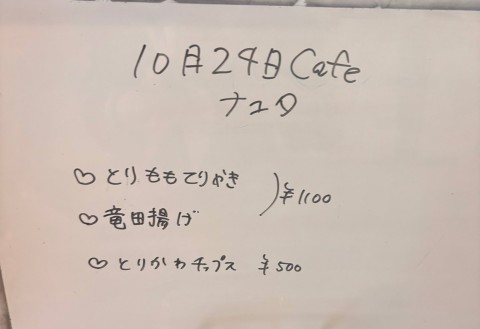 10月24日 Cafe
ナユタ
♡ とりももてりやき
♡ 竜田揚げ
¥1100
♡ とりかわチップス ¥500